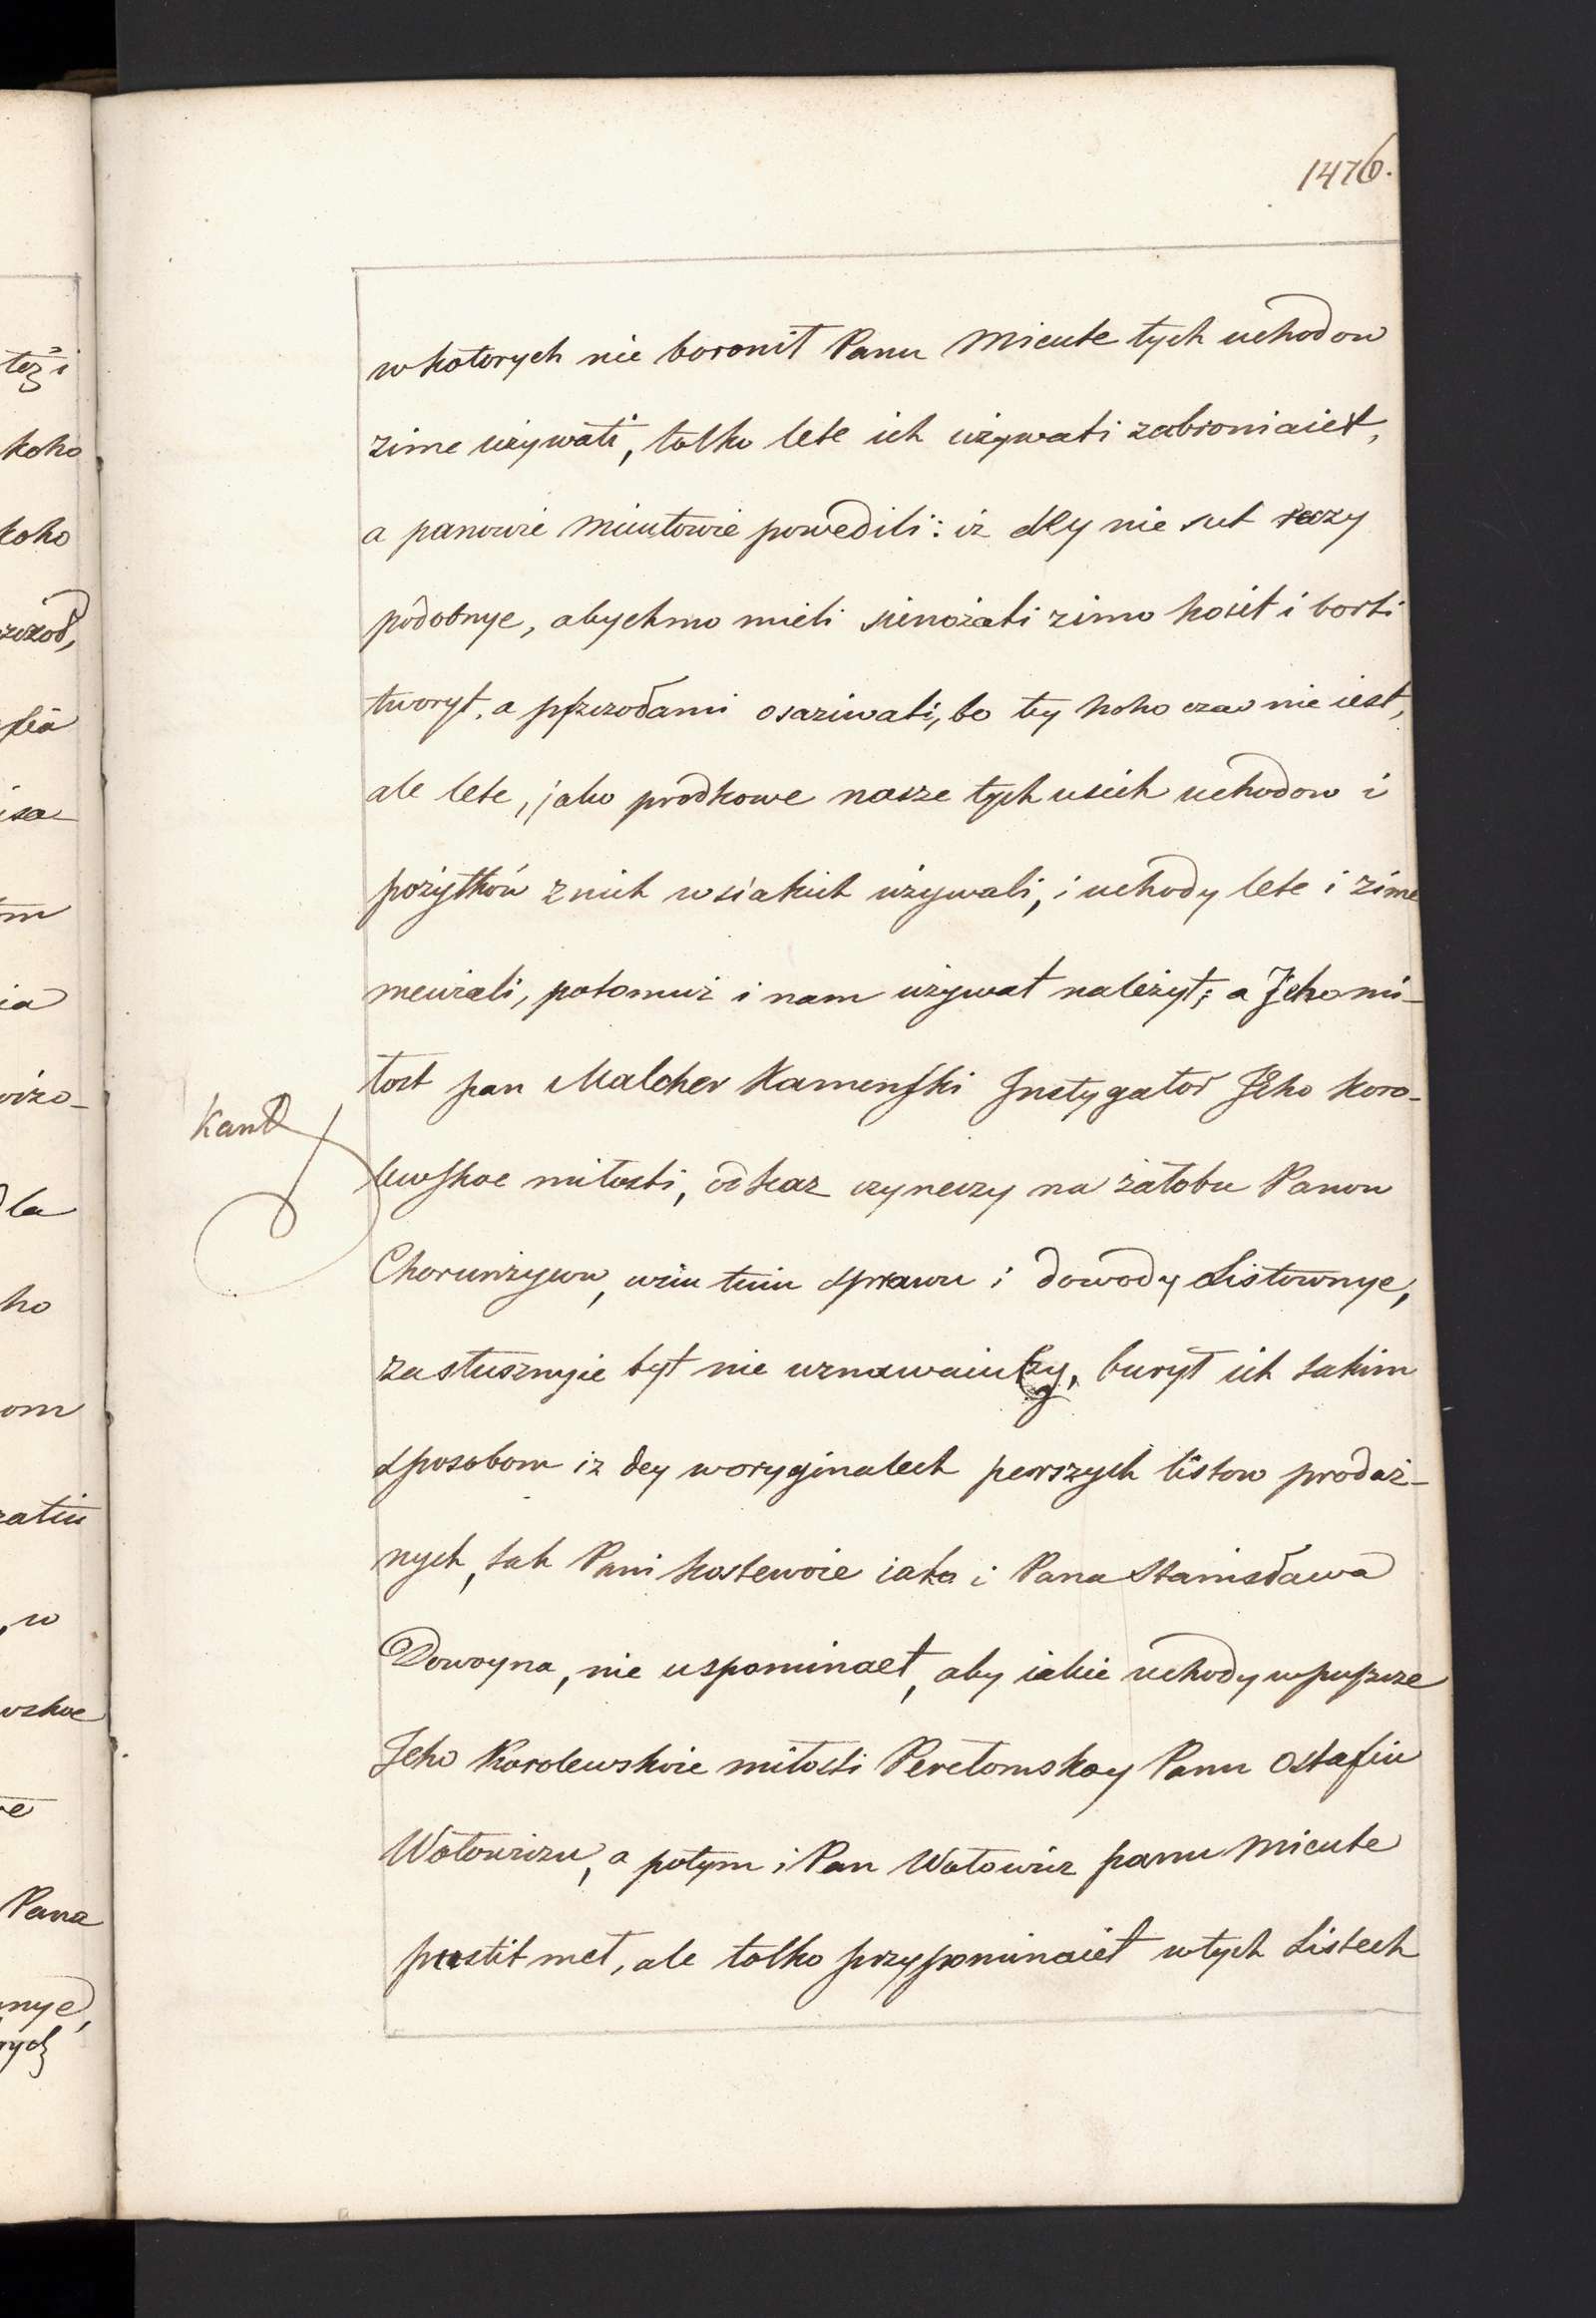 1476.
w kotorych nie boronił Panu Micute tych uchodow
zime używati, tolko lete ich używati zabroniaiet,
a panowie Micutowie powedili: iż dey nie sut reczy
podobnye, abychmo mieli sienożati zimo kosit i borti
tworyt, a pszczołami osaziwati, bo ty koho czas nie iest,
ale lete, jako prodkowe nasze tych usich uchodow i
pożytków z nich wsiakich używali, i uchody lete i zime
mewżali, potomuż i nam używat należyt; a Jeho mi-
łost pan Malcher Kamenski Instygator Jeho koro-
lewskoe miłosti, odkaz czyneczy na żałobu Panou
Chorunżywu, usiu tuiu sprawu i dowody Listownye,
za słusznyie byt nie uznawaiuczy, buryt ich takim
sposobom iz dey woryginalech perszych listow prodaż-
nych, tak Pani Kostewoie iako i Pana Stanisława
Dowoyna, nie uspominaet, aby iakie uchody w puszcze
Jeho Korolewskoie miłosti Perełomskoy Panu Ostafiu
Wołowiczu, a potym i Pan Wołowicz panu Micute
pustit met, ale tolko przypominaiet w tych Listech
Kant
też i
koho
koho
isa-
om
ia
la
ho
om
w
wskoe
Pana